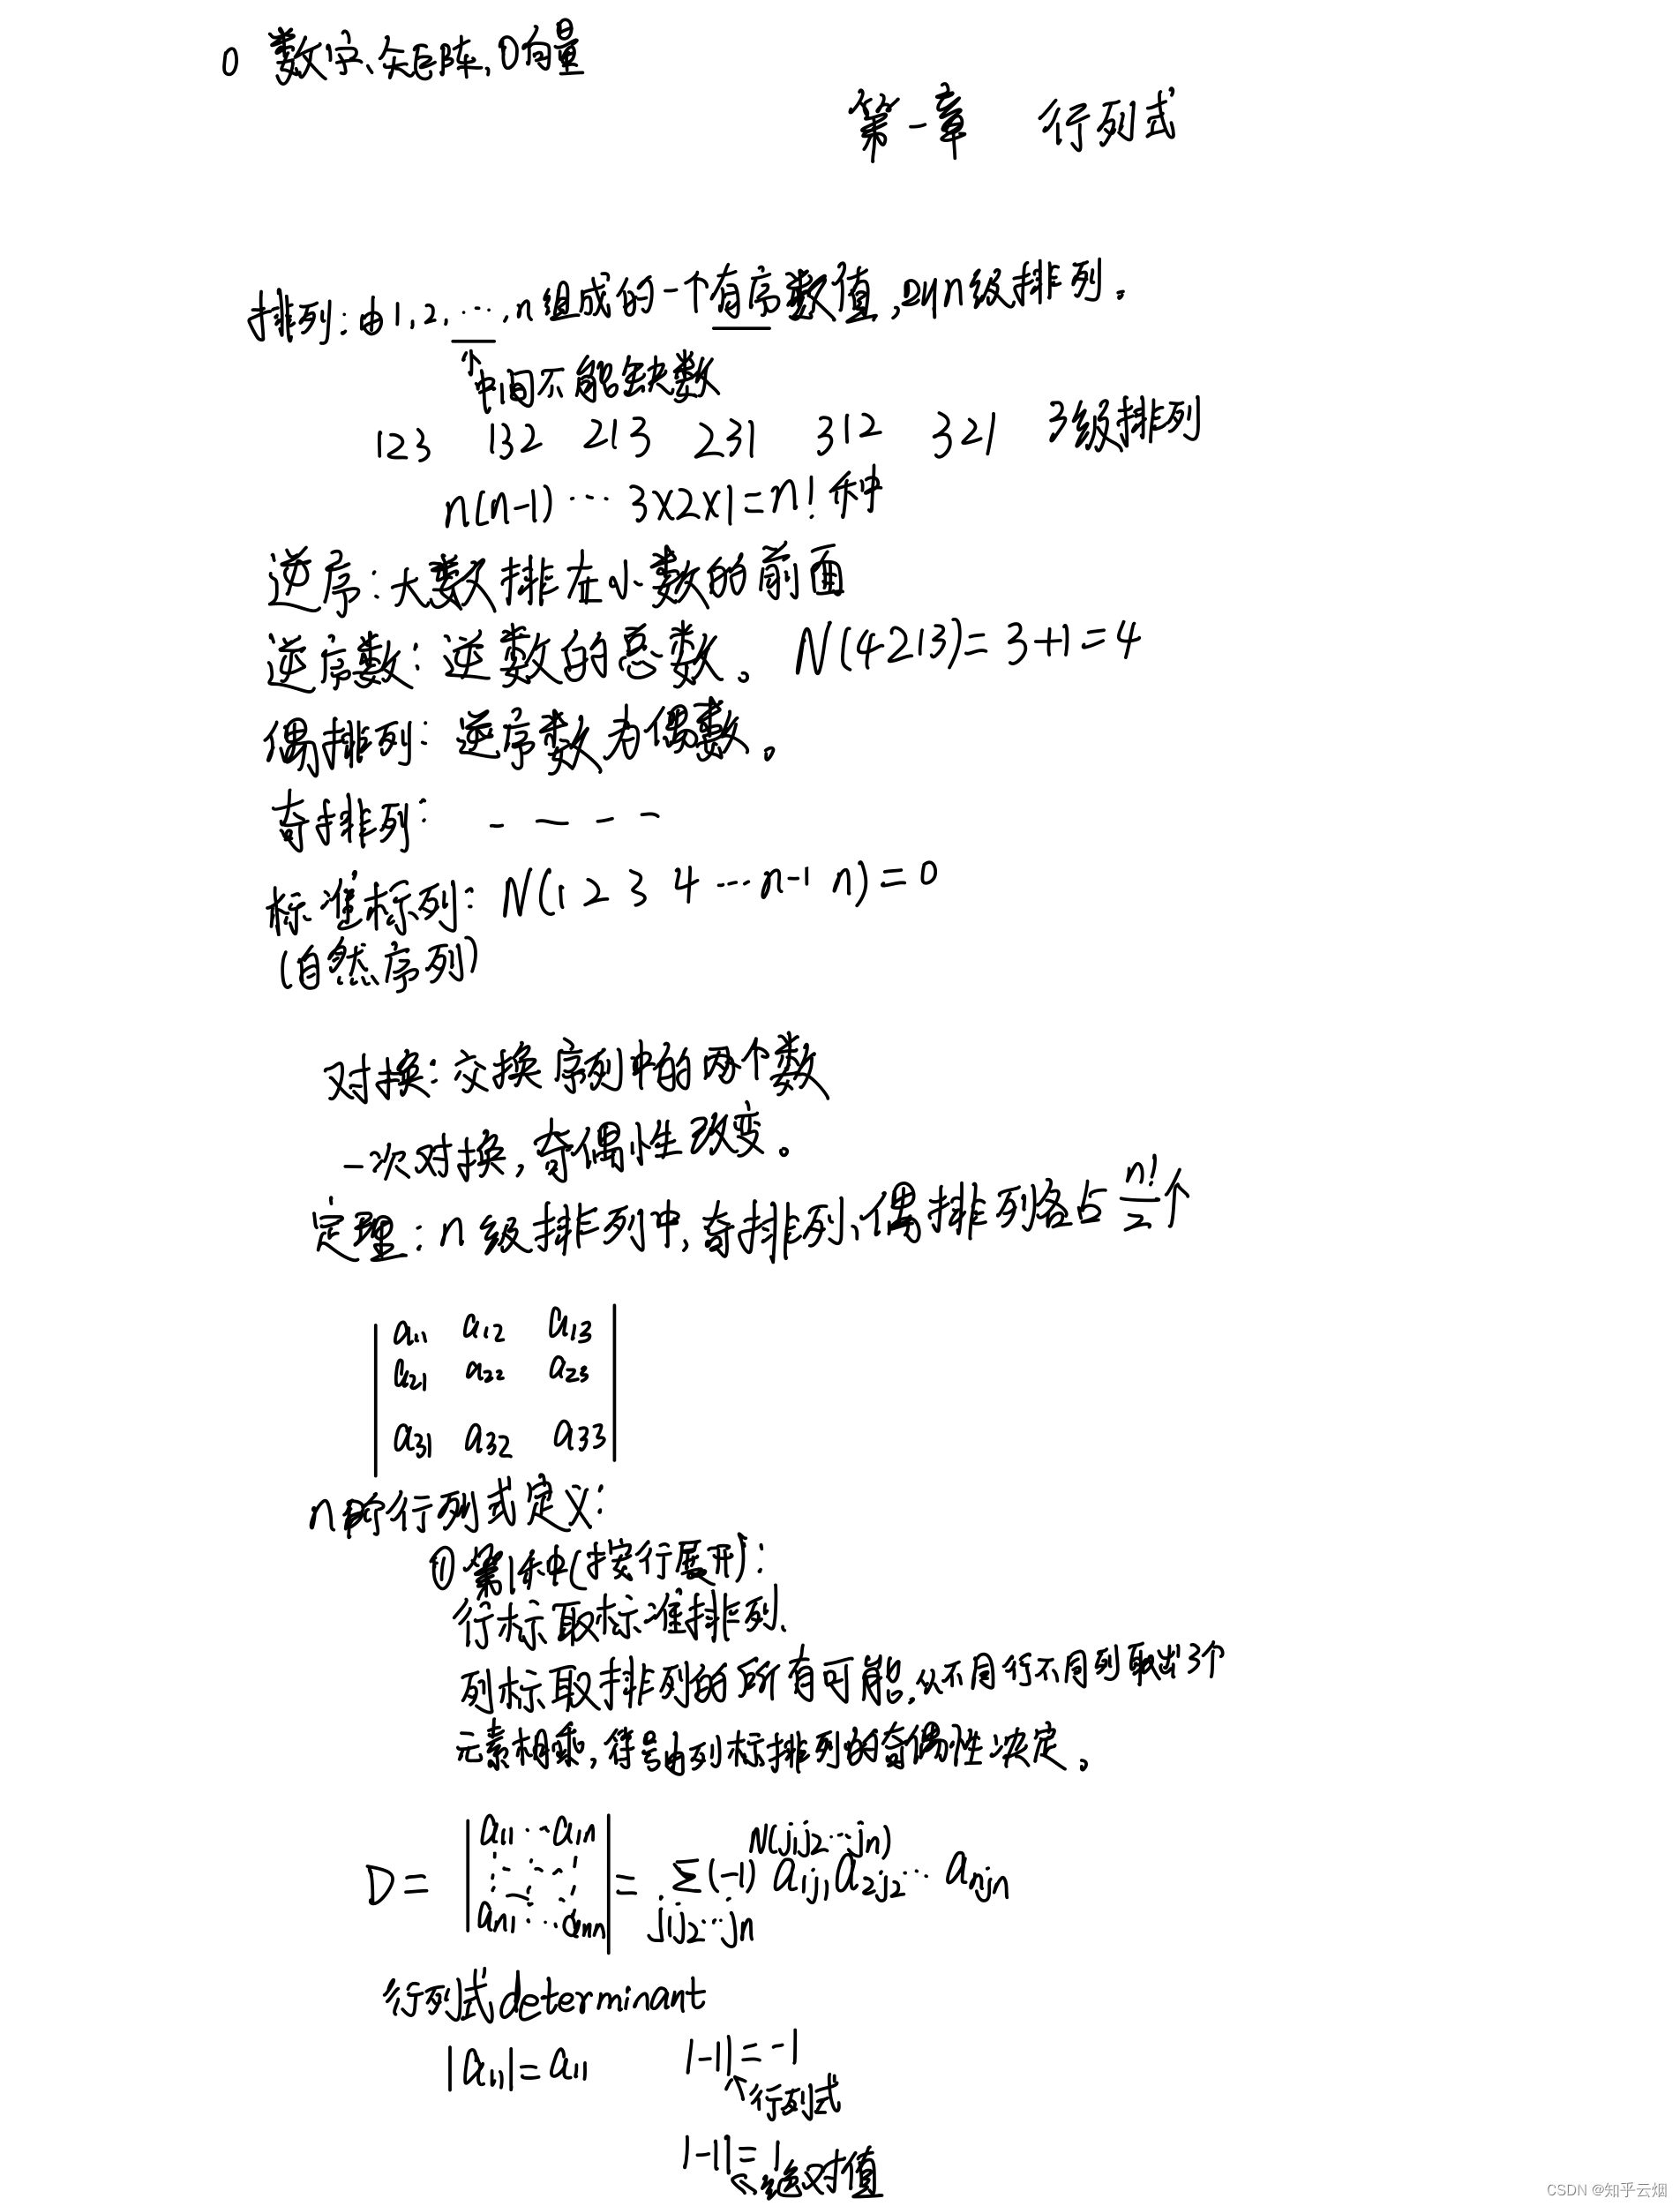 0 数字、矩阵,0向量
第一章 行列式
排列:由1,2,…,n组成的一个有序数值,叫n级排列.
↑
中间不能缺数
123 132 213 231 312 321 3级排列
n(n-1)…3×2×1=n!种
逆序:大数排在小数的前面
逆序数:逆数的总数。 N(4213)=3+1=4
偶排列:逆序数为偶数。
奇排列: - — - -
标准标列: N(1 2 3 4 …n-1 n)=0
(自然序列)
对换:交换序列中的两个数
一次对换,奇偶性改变。
定理:n级排列中,奇排列、偶排列各占n!/2个
|a11 a12 a13|
|a21 a22 a23|
|a31 a32 a33|
n阶行列式定义:
①第1种(按行展开):
行标取标准排列.
列标取排列的所有可能.从不同行不同列取出3个
元素相乘,符号由列标排列的奇偶性决定。
D = |a11 … a1n; ⋮ ⋮; an1 … ann| = Σ_{j1j2…jn} (-1)^{N(j1j2…jn)} a1j1 a2j2 … anjn
行列式determinant
|a11|=a11 |-1|=-1
↖行列式
|-1|=1
↖绝对值
CSDN @知乎云烟